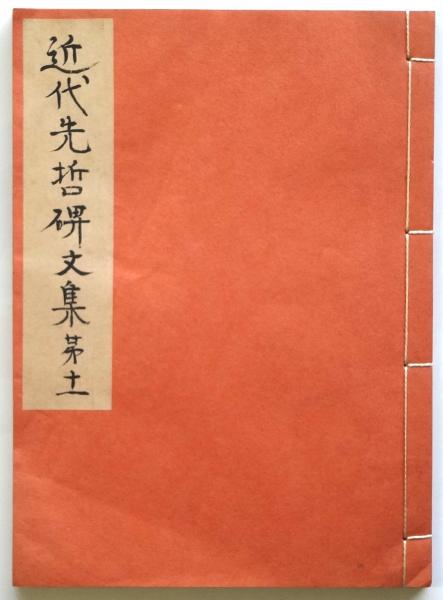 近代先哲碑文集第十一